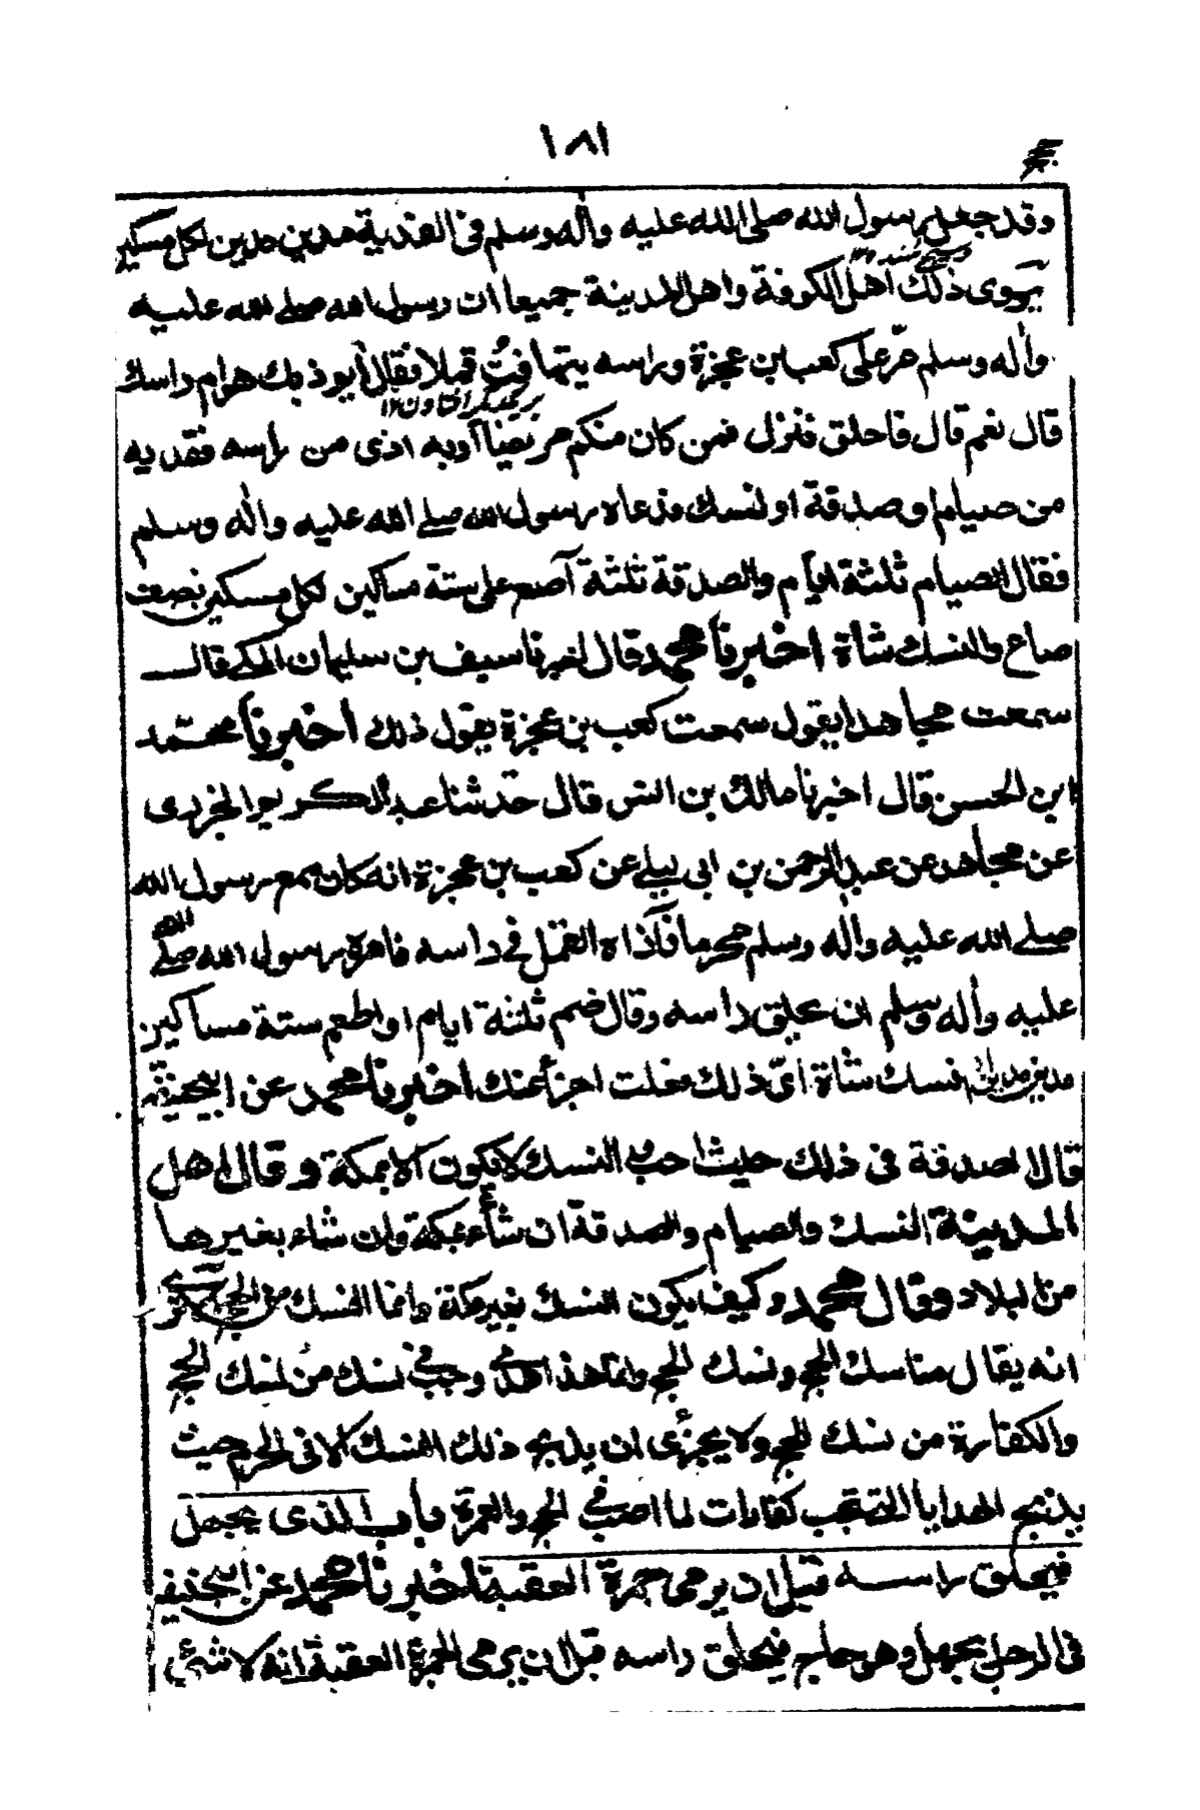 ١٨١
وقد جعل رسول الله صلى الله عليه واله وسلم فى الفدية مدين مدين لكل مسكين
يروى ذلك اهل الكوفة واهل المدينة جميعا ان رسول الله صلے الله عليه
واله وسلم مرّ على كعب بن عجزة وراسه يتهافت قملا فقال أيوذيك هوام راسك
قال نعم قال فاحلق فنزل فمن كان منكم مريضا اوبه اذى من راسه ففديه
من صيام اوصدقة او نسك فدعاه رسول الله صلے الله عليه واله وسلم
فقال الصيام ثلثة ايام والصدقة ثلثة آصع على ستة مساكين لكل مسكين نصف
صاع والنسك شاة اخبرنا محمد قال اخبرنا سيف بن سليمان المكے قال
سمعت مجاهدا يقول سمعت كعب بن عجزة يقول ذلك اخبرنا محمّد
ابن الحسن قال اخبرنا مالك بن انس قال حدثنا عبد الكريم الجزرى
عن مجاهد عن عبد الرحمن بن ابى ليلے عن كعب بن عجزة انه كان مع رسول الله
صلے الله عليه واله وسلم محرما فآذاه القمل فے راسه فامره رسول الله صلے الله
عليه واله وسلم ان يحلق راسه وقال صم ثلثة ايام او اطعم ستة مساكين
مدين مدين او نسك شاة اىّ ذلك فعلت اجزأ عنك اخبرنا محمد عن ابيحنيفة
قال الصدقة فى ذلك حيث احب والنسك لا يكون الا بمكة وقال اهل
المدينة النسك والصيام والصدقة ان شاء بمكة وان شاء بغيرها
من البلاد وقال محمد وكيف يكون النسك بغير مكة وانما النسك من الحج
انه يقال مناسك الحج ونسك الحج وانما هذا وجب فى نسك من نسك الحج
والكفارة من نسك الحج ولا يجزئ ان يذبح ذلك النسك الا فى الحرم حيث
يذبح الهدايا التے تجب كفارات لما اصيب فے الحج والعمرة باب الذى يجهل
فيحلق راسه قبل ان يرمى جمرة العقبة اخبرنا محمد عن ابيحنيفة
فى الرجل يجهل وهو حاج فيحلق راسه قبل ان يرمى الجمرة العقبة انه لا شئ